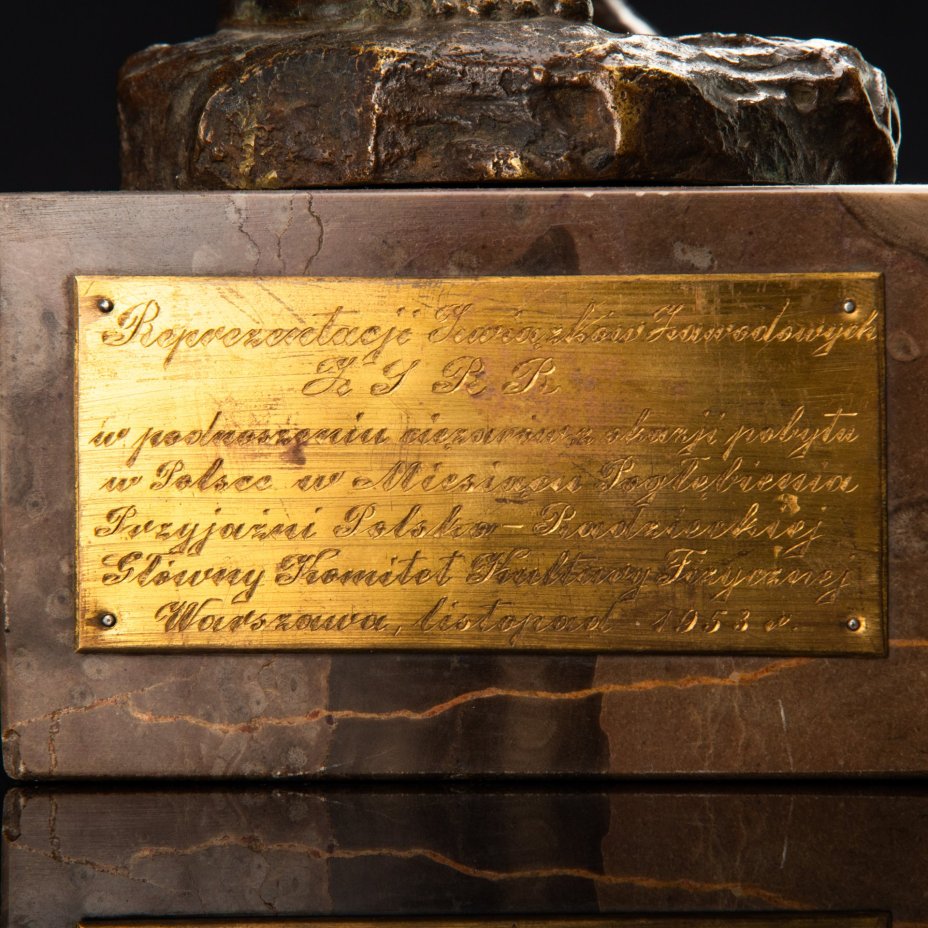 Reprezentacji Związków Zawodowych
Z S R R
w podnoszeniu ciężarów z okazji pobytu
w Polsce w Miesiącu Pogłębienia
Przyjaźni Polsko-Radzieckiej
Główny Komitet Kultury Fizycznej
Warszawa, listopad 1953 r.